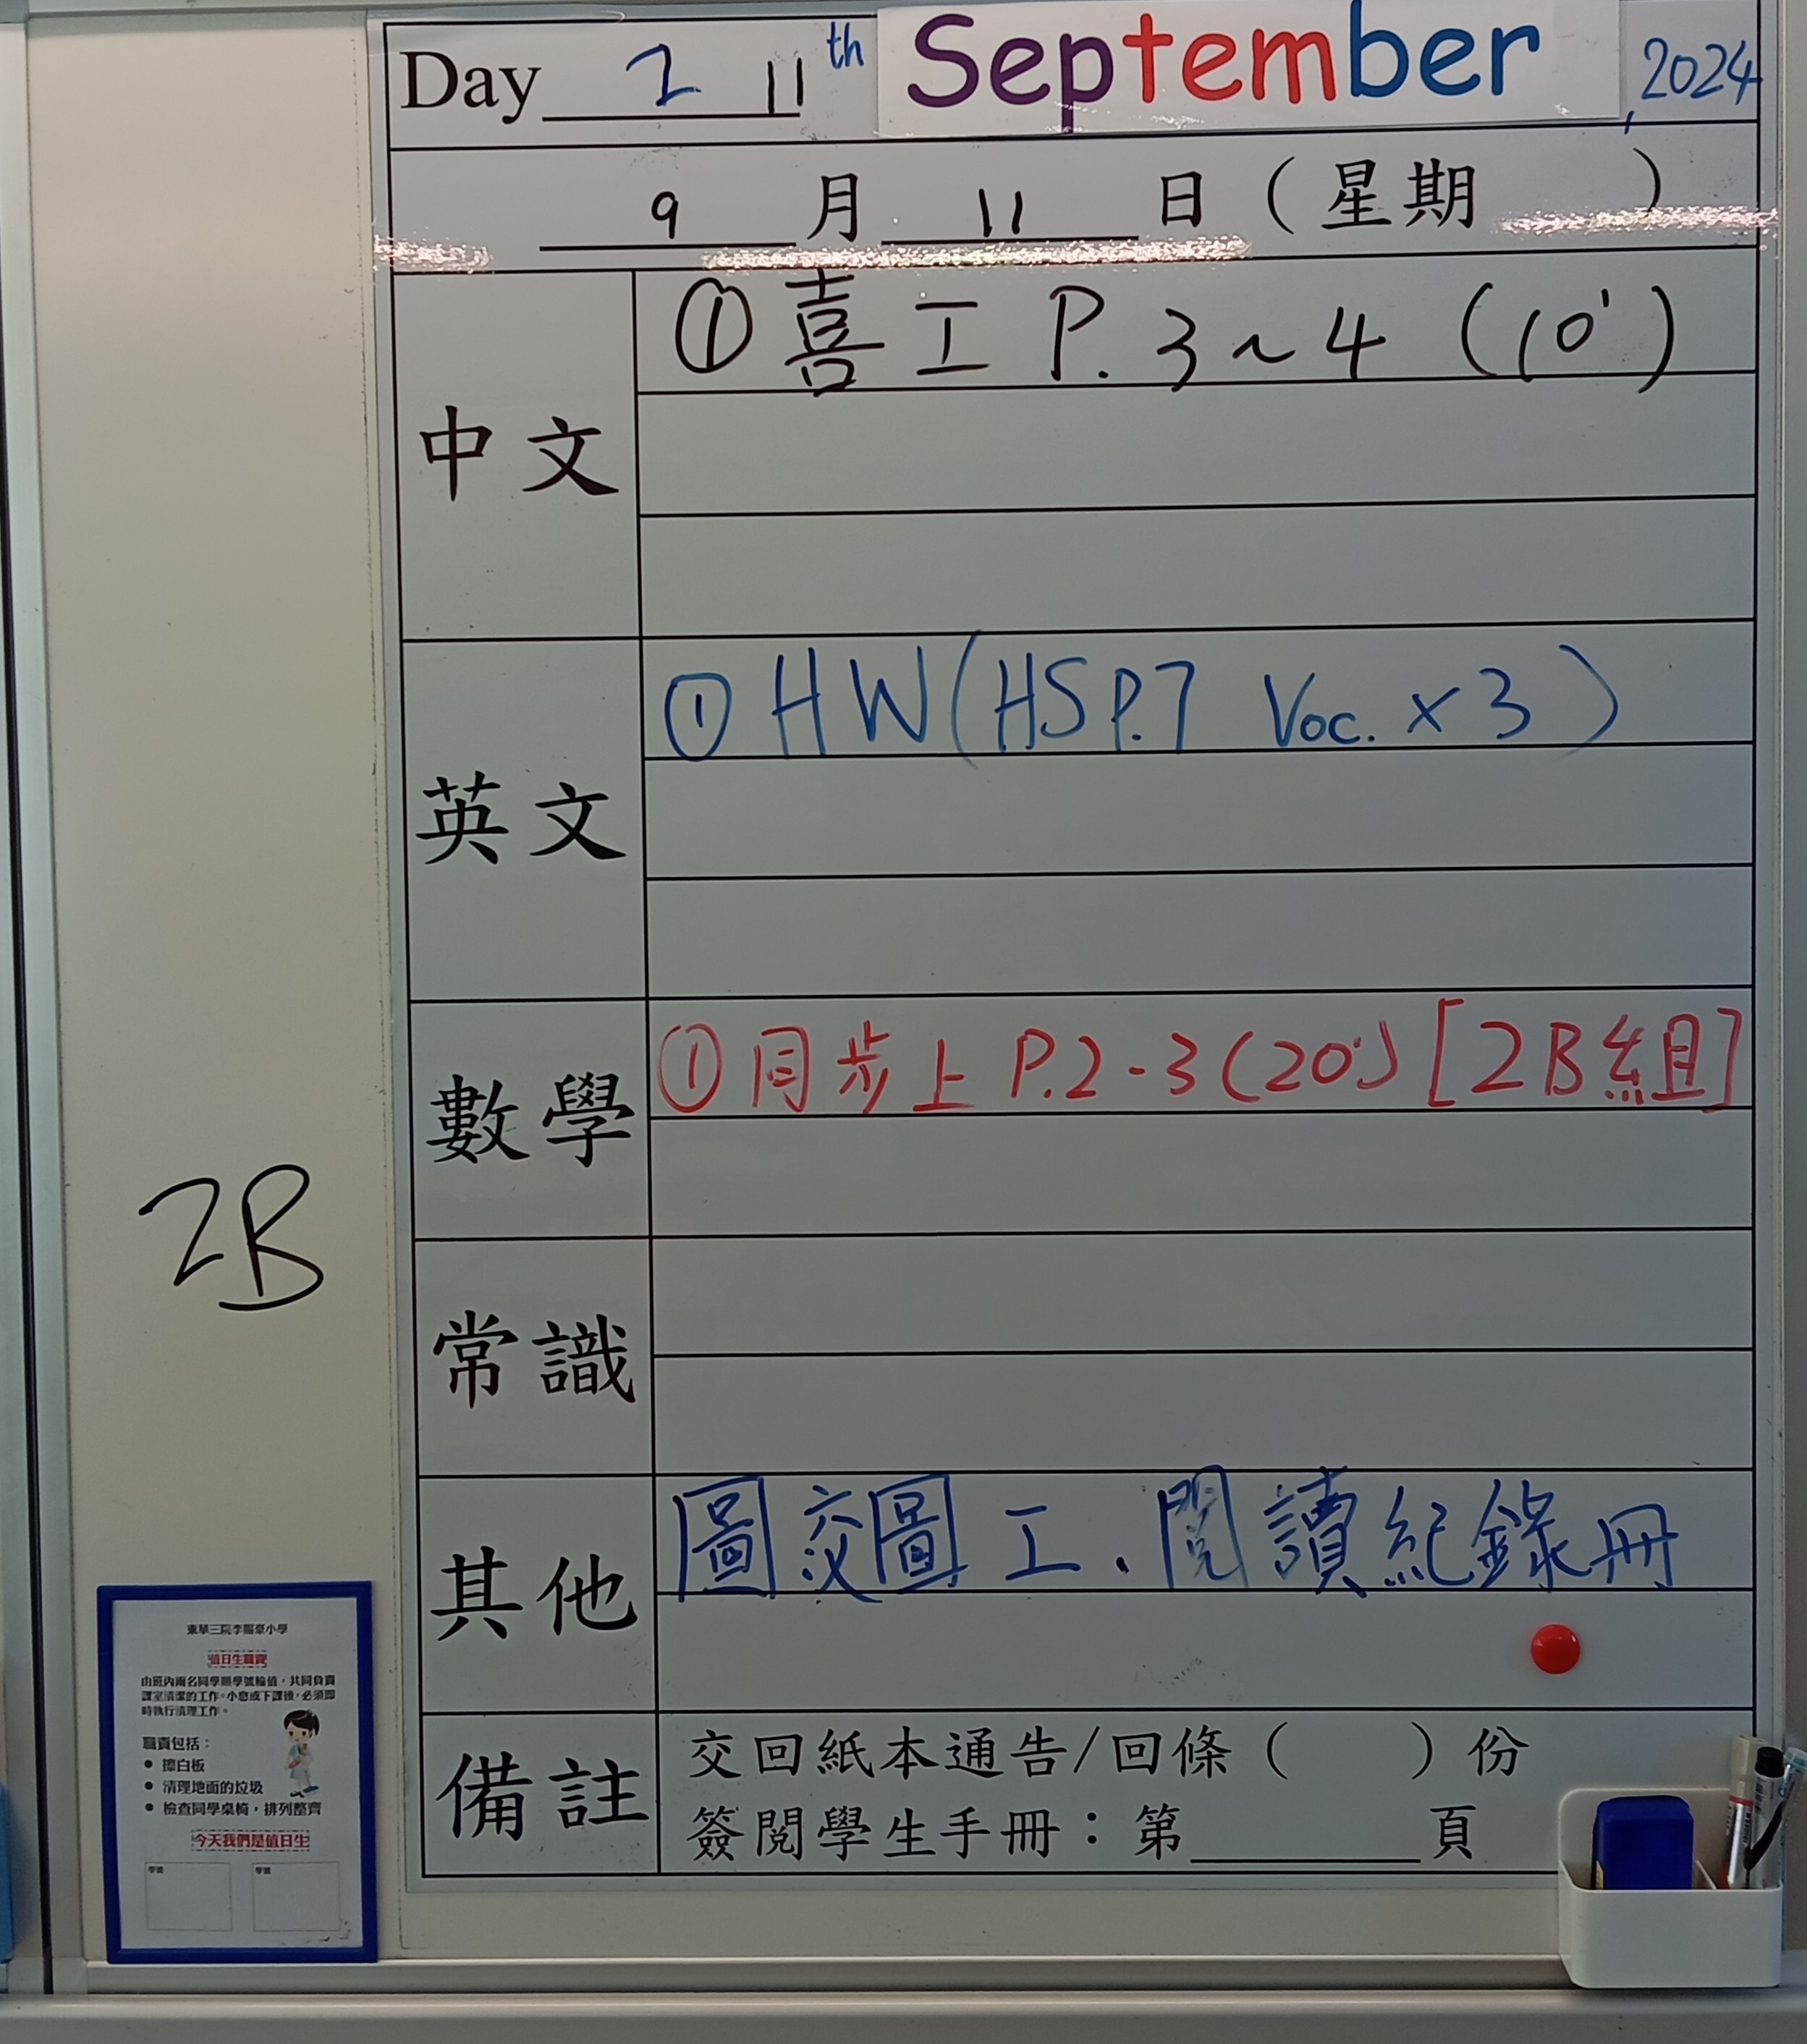 Day 2 11th September, 2024
9月11日（星期　）
中文
①喜工 P.3~4 (10')
英文
①HW(HS P.7 Voc. x3)
數學
①同步上 P.2-3(20') [2B組]
常識
其他
圖交圖工、閱讀紀錄冊
備註
交回紙本通告/回條（　）份
簽閱學生手冊：第______頁
2B
東華三院李賜豪小學
值日生職責
由班內兩名同學順學號輪值，共同負責
課室清潔的工作。小息或下課後，必須即
時執行清理工作。
職責包括：
● 擦白板
● 清理地面的垃圾
● 檢查同學桌椅，排列整齊
今天我們是值日生
學號 學號